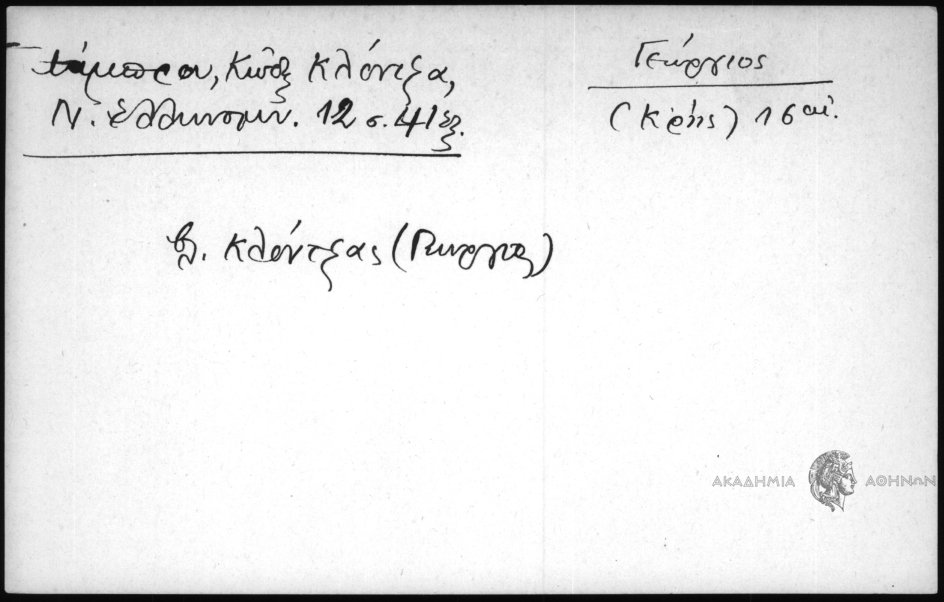 Λάμπρου, Κώδξ Κλόντζα,
Ν. Ἑλληνομν. 12 σ. 41 ἑξ.
Γεώργιος
(Κρής) 16 αἰ.
βλ. Κλόντζας (Γεώργιος)
ΑΚΑΔΗΜΙΑ ΑΘΗΝΩΝ